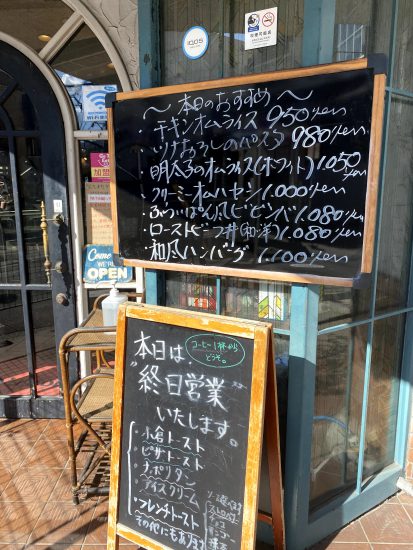 iQOS
Wi-Fi
Come
WE'RE
OPEN
〜本日のおすすめ〜
・チキンオムライス 950yen
・ツナおろしのパスタ 980yen
・明太子のオムライス(ホワイト) 1.050yen
・クリーミーオムハヤシ 1.000yen
ビビンバ 1.080yen
・ローストビーフ丼(和、洋) 1.080yen
・和風ハンバーグ 1.100yen
コーヒー1杯から
どうぞ。
本日は
"終日営業"
いたします。
小倉トースト
ピザトースト
ナポリタン
アイスクリーム
フレンチトースト
その他にもあります